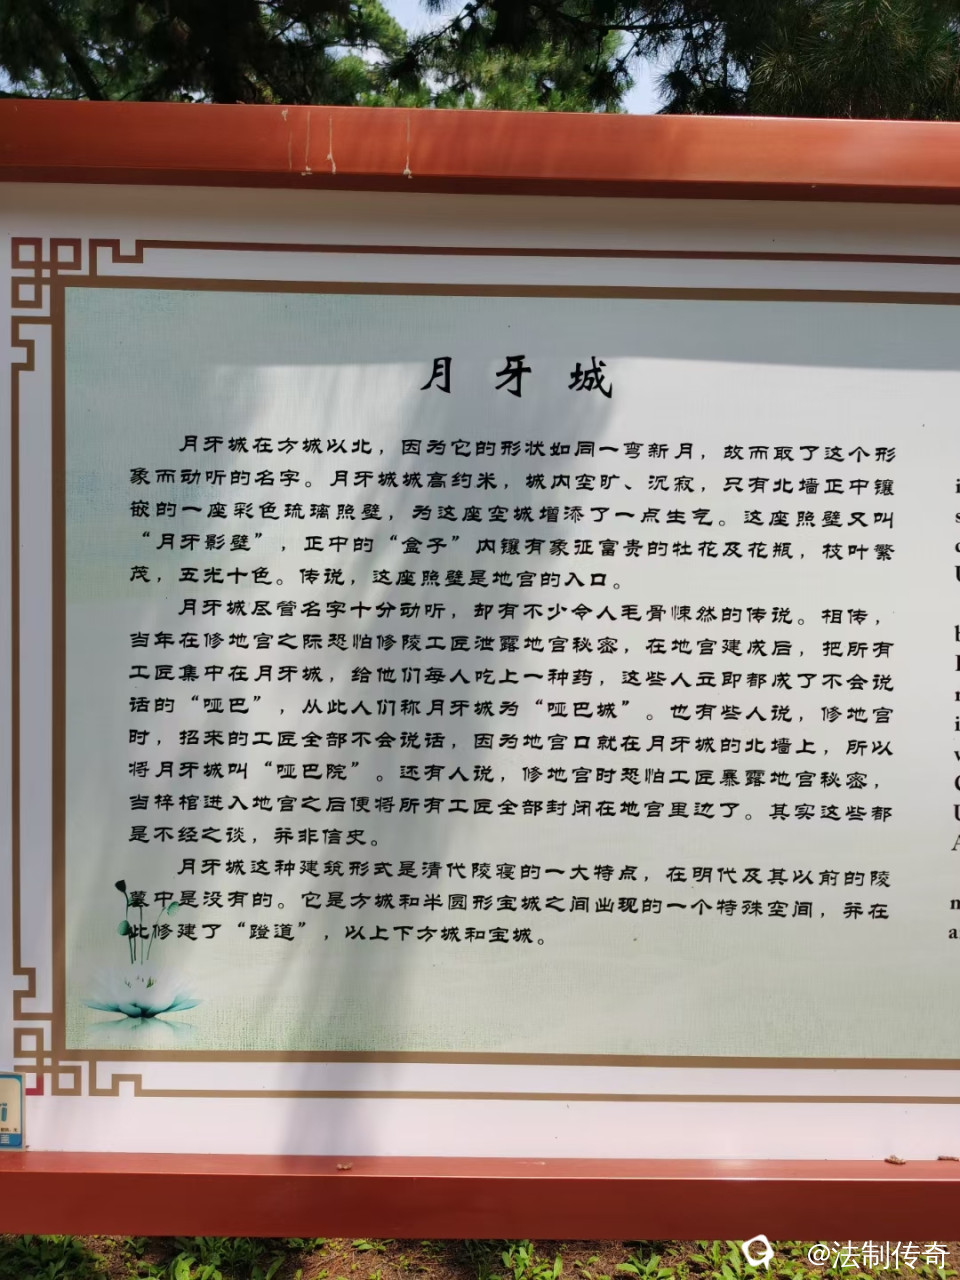 月牙城
月牙城在方城以北，因为它的形状如同一弯新月，故而取了这个形
象而动听的名字。月牙城城高约米，城内空旷、沉寂，只有北墙正中镶
嵌的一座彩色琉璃照壁，为这座空城增添了一点生气。这座照壁又叫
“月牙影壁”，正中的“盒子”内镶有象征富贵的牡花及花瓶，枝叶繁
茂，五光十色。传说，这座照壁是地宫的入口。
月牙城尽管名字十分动听，却有不少令人毛骨悚然的传说。相传，
当年在修地宫之际恐怕修陵工匠泄露地宫秘密，在地宫建成后，把所有
工匠集中在月牙城，给他们每人吃上一种药，这些人立即都成了不会说
话的“哑巴”，从此人们称月牙城为“哑巴城”。也有些人说，修地宫
时，招来的工匠全部不会说话，因为地宫口就在月牙城的北墙上，所以
将月牙城叫“哑巴院”。还有人说，修地宫时恐怕工匠暴露地宫秘密，
当梓棺进入地宫之后便将所有工匠全部封闭在地宫里边了。其实这些都
是不经之谈，并非信史。
月牙城这种建筑形式是清代陵寝的一大特点，在明代及其以前的陵
墓中是没有的。它是方城和半圆形宝城之间出现的一个特殊空间，并在
此修建了“蹬道”，以上下方城和宝城。
@法制传奇